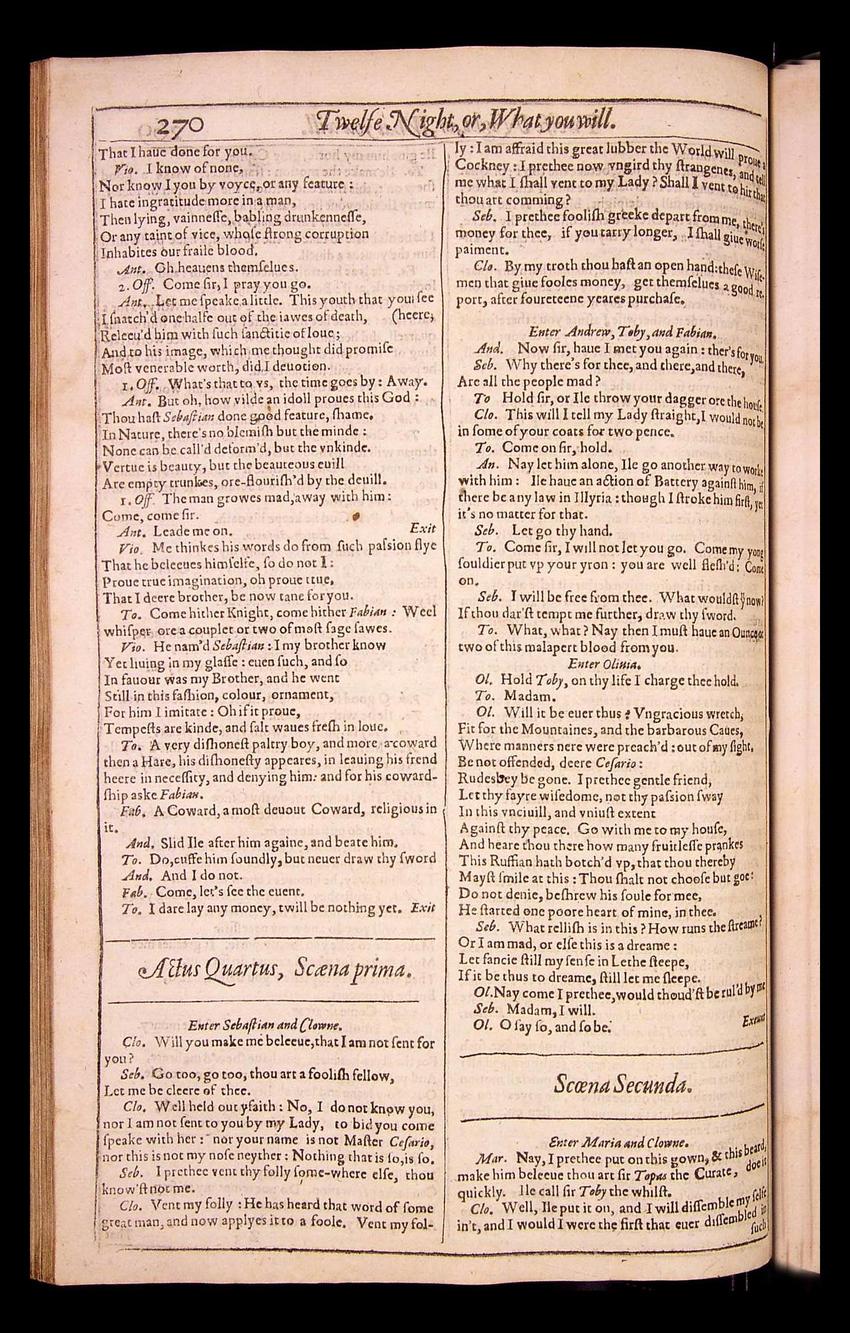 270
Twelfe Night, or, What you will.
That I haue done for you.
Vio. I know of none,
Nor know I you by voyce, or any feature :
I hate ingratitude more in a man,
Then lying, vainneſſe, babling drunkenneſſe,
Or any taint of vice, whoſe ſtrong corruption
Inhabites our fraile blood.
Ant. Oh heauens themſelues.
2. Off. Come ſir, I pray you go.
Ant. Let me ſpeake a little. This youth that you ſee
I ſnatch'd one halfe out of the iawes of death, (heere,
Releeu'd him with ſuch ſanctitie of loue;
And to his image, which me thought did promiſe
Moſt venerable worth, did I deuotion.
1. Off. What's that to vs, the time goes by : Away.
Ant. But oh, how vilde an idoll proues this God :
Thou haſt Sebaſtian done good feature, ſhame.
In Nature, there's no blemiſh but the minde :
None can be call'd deform'd, but the vnkinde.
Vertue is beauty, but the beauteous euill
Are empty trunkes, ore-flouriſh'd by the deuill.
1. Off. The man growes mad, away with him :
Come, come ſir.
Ant. Leade me on. Exit
Vio. Me thinkes his words do from ſuch paſsion flye
That he beleeues himſelfe, ſo do not I :
Proue true imagination, oh proue true,
That I deere brother, be now tane for you.
To. Come hither Knight, come hither Fabian : Weel
whiſper ore a couplet or two of moſt ſage ſawes.
Vio. He nam'd Sebaſtian : I my brother know
Yet liuing in my glaſſe : euen ſuch, and ſo
In fauour was my Brother, and he went
Still in this faſhion, colour, ornament,
For him I imitate : Oh if it proue,
Tempeſts are kinde, and ſalt waues freſh in loue.
To. A very diſhoneſt paltry boy, and more a coward
then a Hare, his diſhoneſty appeares, in leauing his frend
heere in neceſſity, and denying him: and for his coward-
ſhip aske Fabian.
Fab. A Coward, a moſt deuout Coward, religious in
it.
And. Slid Ile after him againe, and beate him.
To. Do, cuffe him ſoundly, but neuer draw thy ſword
And. And I do not.
Fab. Come, let's ſee the euent.
To. I dare lay any money, twill be nothing yet. Exit
Actus Quartus, Scæna prima.
Enter Sebaſtian and Clowne.
Clo. Will you make me beleeue, that I am not ſent for
you?
Seb. Go too, go too, thou art a fooliſh fellow,
Let me be cleere of thee.
Clo. Well held out yfaith : No, I do not know you,
nor I am not ſent to you by my Lady, to bid you come
ſpeake with her : nor your name is not Maſter Ceſario,
nor this is not my noſe neyther : Nothing that is ſo, is ſo.
Seb. I prethee vent thy folly ſome-where elſe, thou
know'ſt not me.
Clo. Vent my folly : He has heard that word of ſome
great man, and now applyes it to a foole. Vent my fol-
ly : I am affraid this great lubber the World will proue a
Cockney : I prethee now vngird thy ſtrangenes, and tell
me what I ſhall vent to my Lady ? Shall I vent to hir that
thou art comming?
Seb. I prethee fooliſh greeke depart from me, there's
money for thee, if you tarry longer, I ſhall giue worſe
paiment.
Clo. By my troth thou haſt an open hand: theſe Wiſe-
men that giue fooles money, get themſelues a good re-
port, after foureteene yeares purchaſe.
Enter Andrew, Toby, and Fabian.
And. Now ſir, haue I met you again : ther's for you.
Seb. Why there's for thee, and there, and there,
Are all the people mad?
To Hold ſir, or Ile throw your dagger ore the houſe.
Clo. This will I tell my Lady ſtraight, I would not be
in ſome of your coats for two pence.
To. Come on ſir, hold.
An. Nay let him alone, Ile go another way to worke
with him : Ile haue an action of Battery againſt him, if
there be any law in Illyria : though I ſtroke him firſt, yet
it's no matter for that.
Seb. Let go thy hand.
To. Come ſir, I will not let you go. Come my yong
ſouldier put vp your yron : you are well fleſh'd : Come
on.
Seb. I will be free from thee. What wouldſt ỹ now?
If thou dar'ſt tempt me further, draw thy ſword.
To. What, what? Nay then I muſt haue an Ounce or
two of this malapert blood from you.
Enter Oliuia.
Ol. Hold Toby, on thy life I charge thee hold.
To. Madam.
Ol. Will it be euer thus? Vngracious wretch,
Fit for the Mountaines, and the barbarous Caues,
Where manners nere were preach'd : out of my ſight,
Be not offended, deere Ceſario :
Rudesbey be gone. I prethee gentle friend,
Let thy fayre wiſedome, not thy paſsion ſway
In this vnciuill, and vniuſt extent
Againſt thy peace. Go with me to my houſe,
And heare thou there how many fruitleſſe prankes
This Ruffian hath botch'd vp, that thou thereby
Mayſt ſmile at this : Thou ſhalt not chooſe but goe :
Do not denie, beſhrew his ſoule for mee,
He ſtarted one poore heart of mine, in thee.
Seb. What relliſh is in this? How runs the ſtreame?
Or I am mad, or elſe this is a dreame :
Let fancie ſtill my ſenſe in Lethe ſteepe,
If it be thus to dreame, ſtill let me ſleepe.
Ol. Nay come I prethee, would thoud'ſt be rul'd by me
Seb. Madam, I will.
Ol. O ſay ſo, and ſo be. Exeunt
Scœna Secunda.
Enter Maria and Clowne.
Mar. Nay, I prethee put on this gown, & this beard,
make him beleeue thou art ſir Topas the Curate, doe it
quickly. Ile call ſir Toby the whilſt.
Clo. Well, Ile put it on, and I will diſſemble my ſelfe
in't, and I would I were the firſt that euer diſſembled in
ſuch